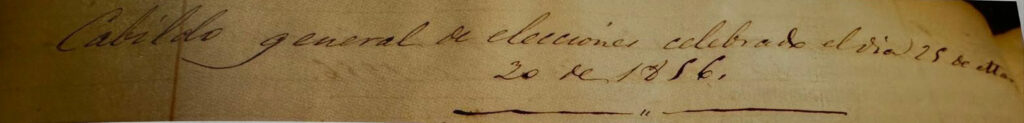 Cabildo general de elecciones celebrado el dia 25 de Mar
zo de 1856.